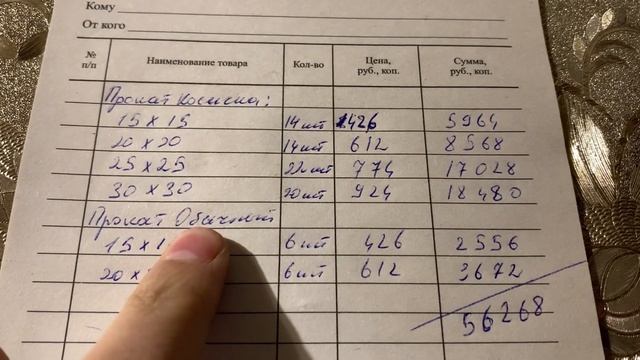 Кому
От кого
№ п/п Наименование товара Кол-во Цена, руб., коп. Сумма, руб., коп.
Прокат :
15 х 15 14 шт 426 5964
20 х 20 14 шт 612 8568
25 х 25 22 шт 774 17028
30 х 30 20 шт 924 18480
Прокат Обычный
15 х 1 6 шт 426 2556
20 х 6 шт 612 3672
56268